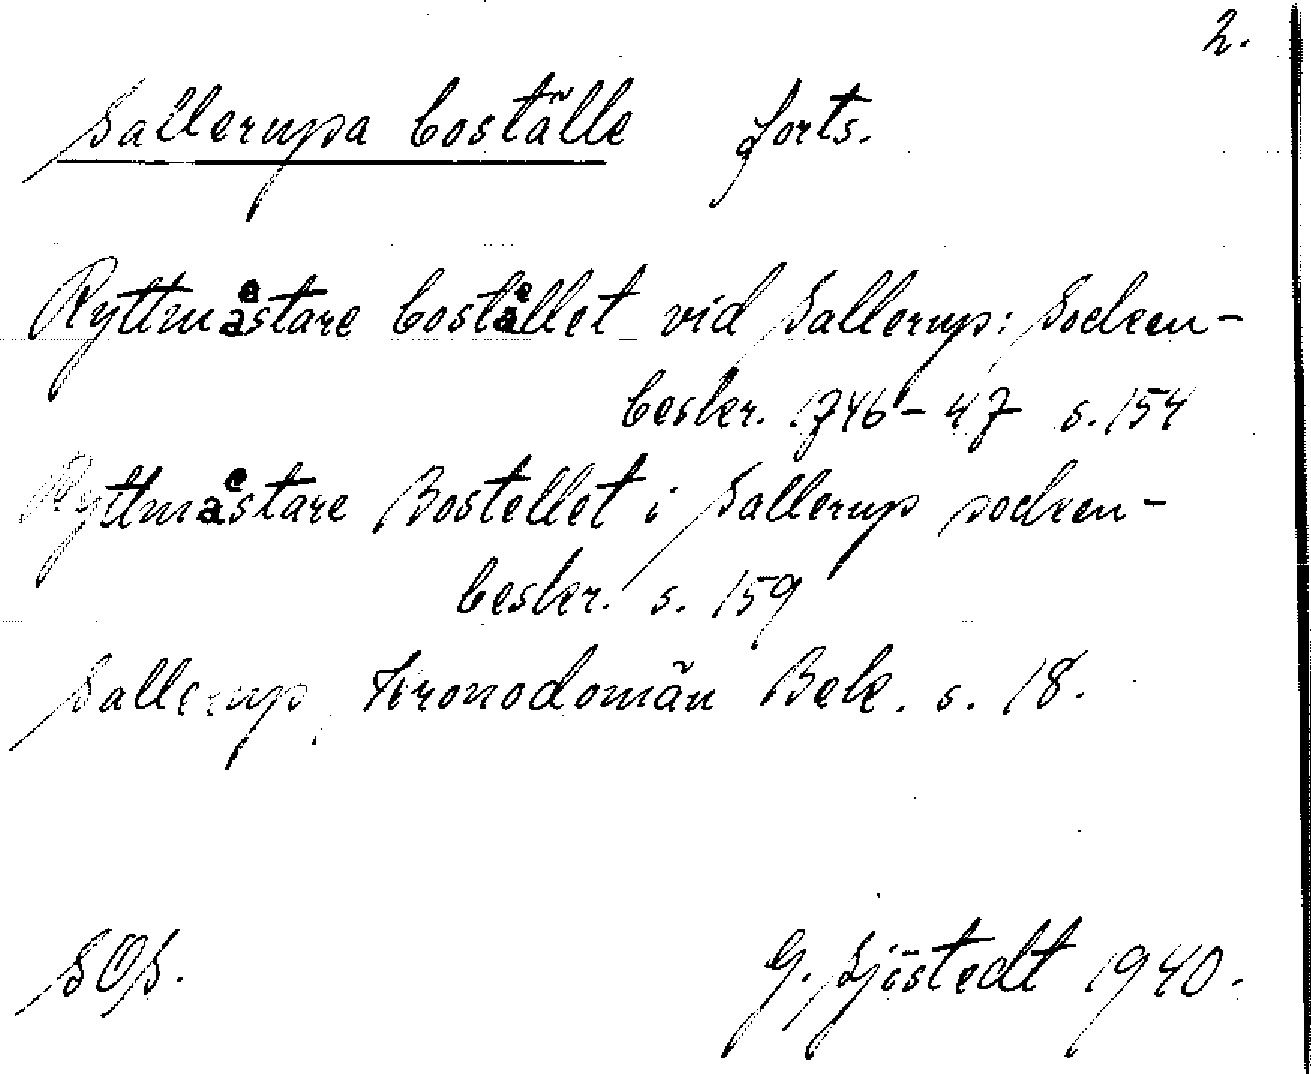 2.
Sallerupa boställe forts.
Ryttmaͤstare bostaͤllet vid Sallerup: Socken-
beskr. 1746-47 s. 154
Ryttmaͤstare Bostellet i Sallerup socken-
beskr. s. 159
Sallerup, Kronodomän Bek. s. 18.
SOS. G. Sjöstedt 1940.